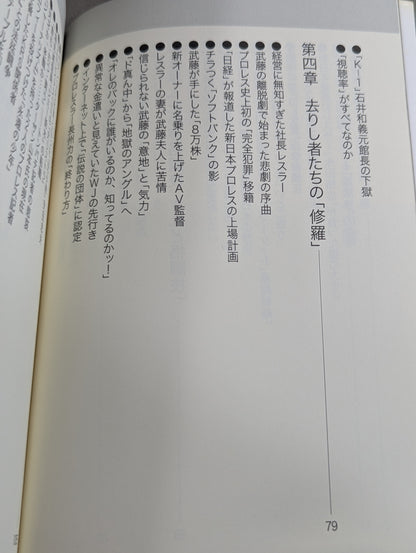 ●「K-1」石井和義元館長の下獄
●「視聴率」がすべてなのか
第四章 去りし者たちの「修羅」 79
●経営に無知すぎた社長レスラー
●武藤の離脱劇で始まった悲劇の序曲
●プロレス史上初の「完全犯罪」移籍
●「日経」が報道した新日本プロレスの上場計画
●チラつく「ソフトバンク」の影
●武藤が手にした「8万株」
●新オーナーに名乗りを上げたAV監督
●レスラーの妻が武藤夫人に苦情
●信じられない武藤の「意地」と「気力」
●「ド真ん中」から「地獄のアングル」へ
●「オレのバックに誰がいるのか、知ってるのかッ!」
●異常な金遣いと見えていたWJの先行き
●インターネット上で「伝説の団体」に認定
●プロレスラー長州力の「終わり方」